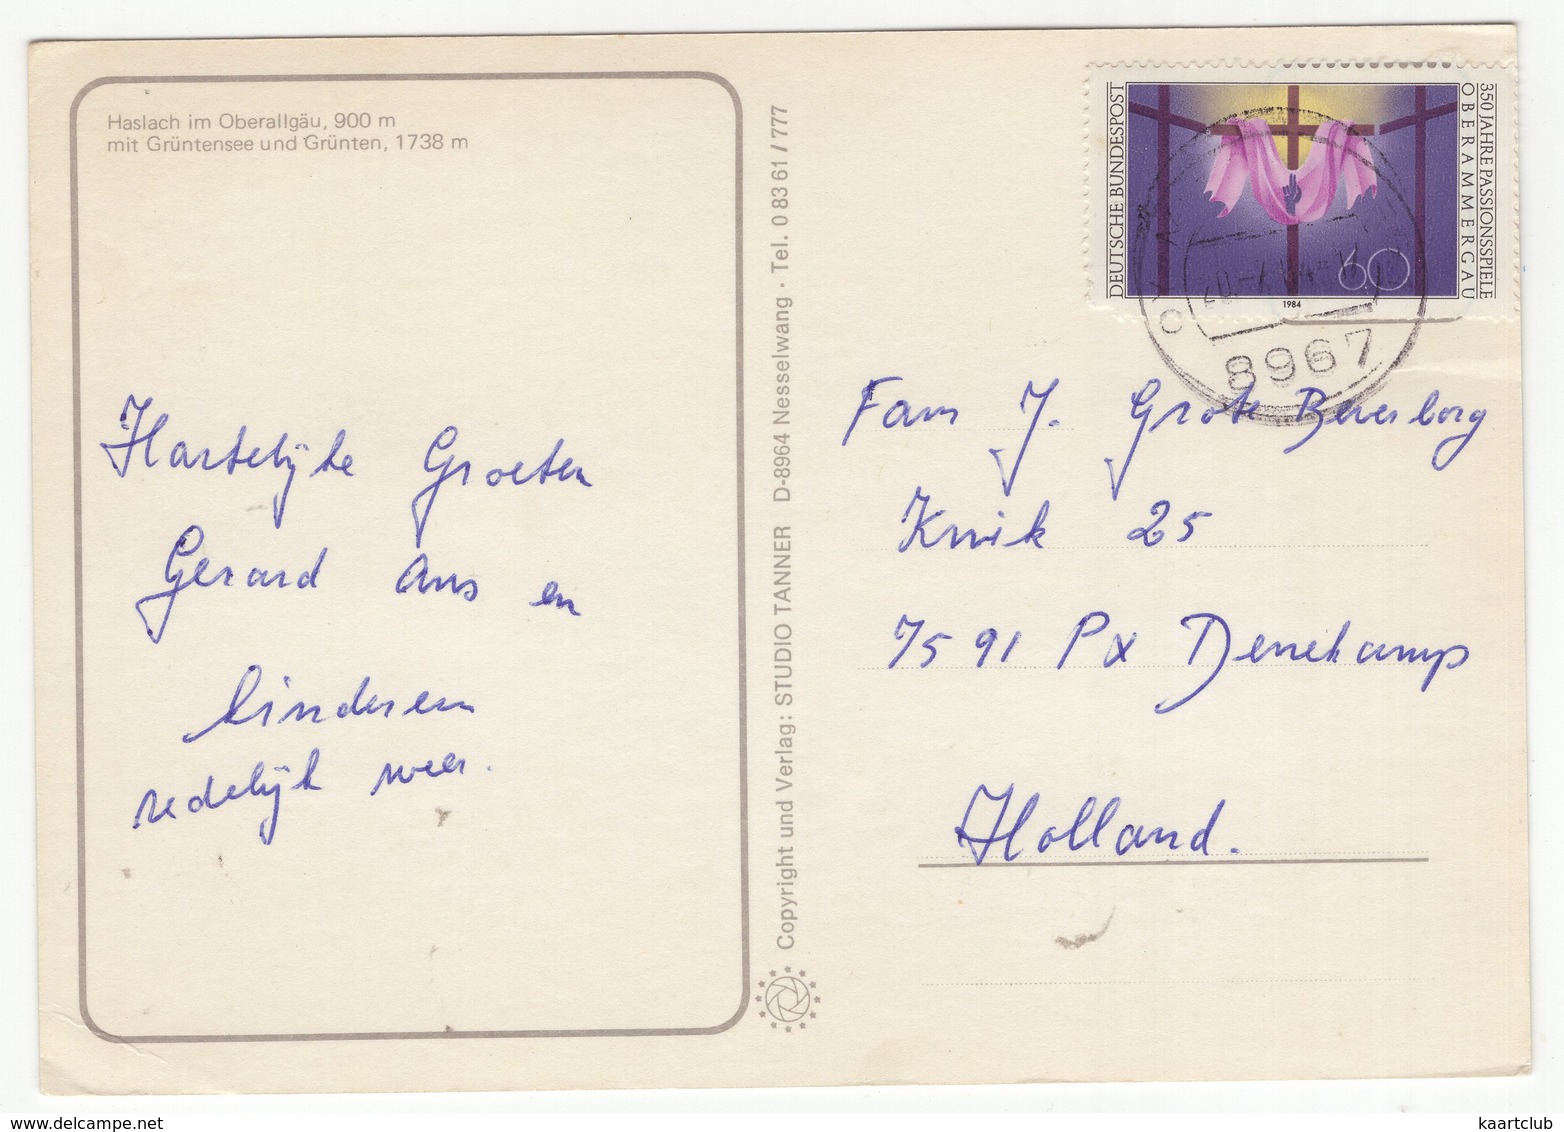 Haslach im Oberallgäu, 900 m
mit Grüntensee und Grünten, 1738 m
Hartelijke Groeten
Gerard Ans en
kinderen
redelijk weer.
Copyright und Verlag: STUDIO TANNER D-8964 Nesselwang · Tel. 0 83 61 / 777
DEUTSCHE BUNDESPOST
350 JAHRE PASSIONSSPIELE
OBERAMMERGAU
60
1984
8967
Fam J. Grote Beverborg
Kwik 25
7591 PX Denekamp
Holland.
kaartclub